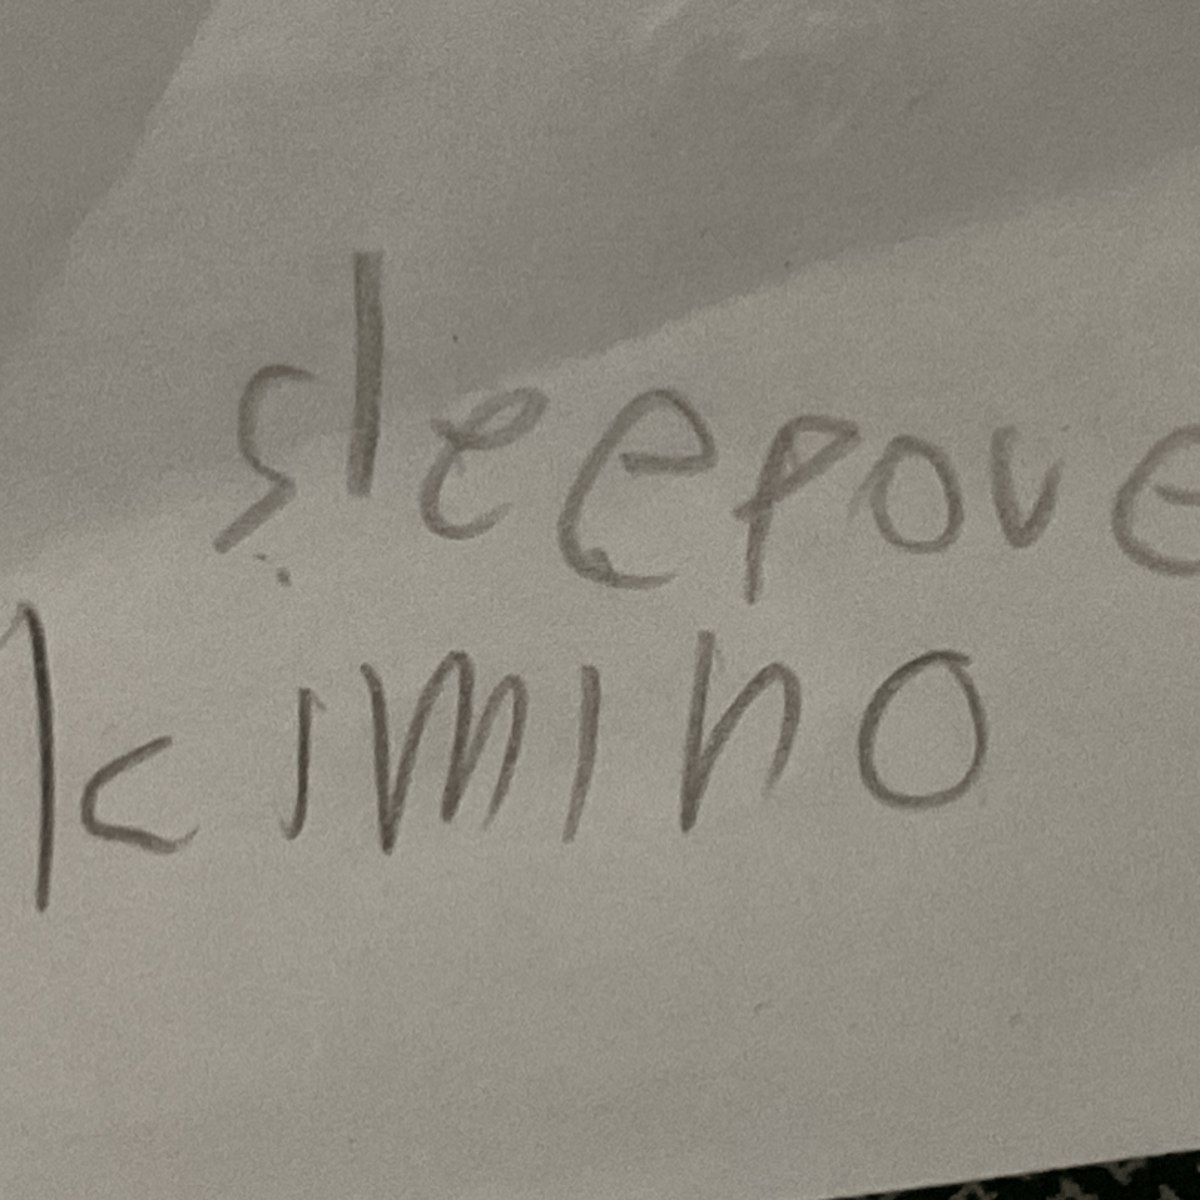 sleepove
kimino